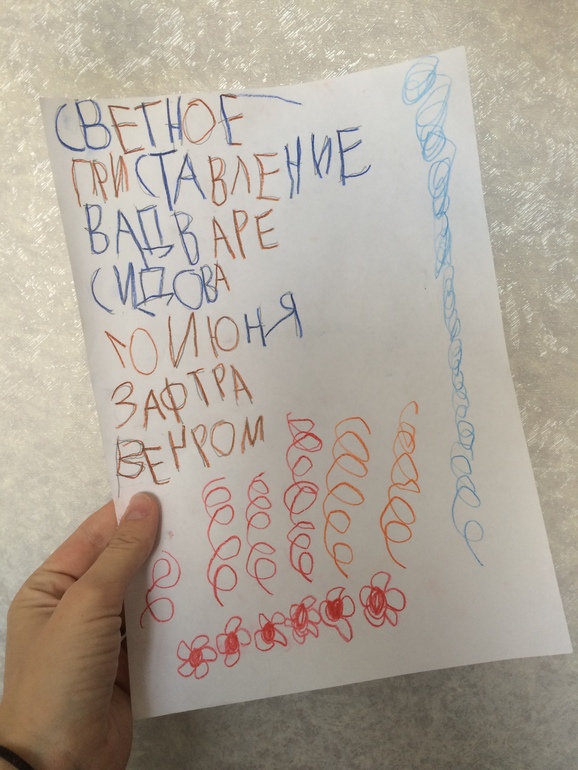 СВЕТНОЕ
ПРИСТАВЛЕНИЕ
ВАДВАРЕ
СИДОВА
10 ИЮНЯ
ЗАФТРА
ВЕЧРОМ